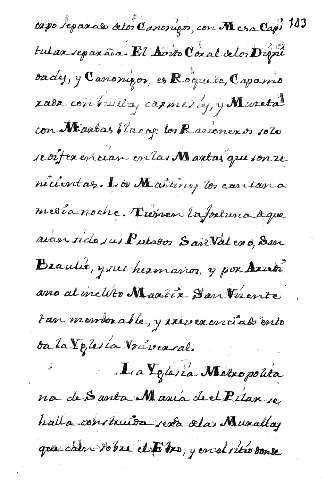 103
cupo separado de los Canonigos, con Mesa Capi
tular separada. El Avito Coral de los Digni
dades, y Canonigos, es Roquete, Capa mo
rada con vuelta carmesi, y Muceta
con Martas blacas: los Racioneros solo
se diferencian en las Martas que son ze
nicientas. Los Maitines los cantan a
media noche. Tienen la fortuna de que
aian sido sus Prelados San Valero, San
Braulio, y sus hermanos, y por Arzedi
ano al inclito Martir San Vicente
tan memorable, y rreverenciado en to
da la Yglesia Vniversal.
La Yglesia Metropolita
na de Santa Maria de el Pilar se
halla construida serca de las Murallas
que caen sobre el Ebro, y en el sitio donde